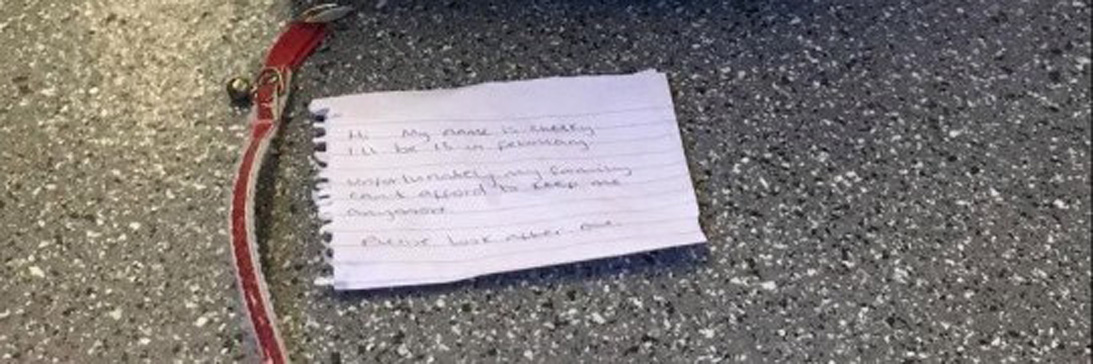 Hi My name is Cheeky
I'll be 15 in February
Unfortunately my family
can't afford to keep me
anymore.
Please look after me.